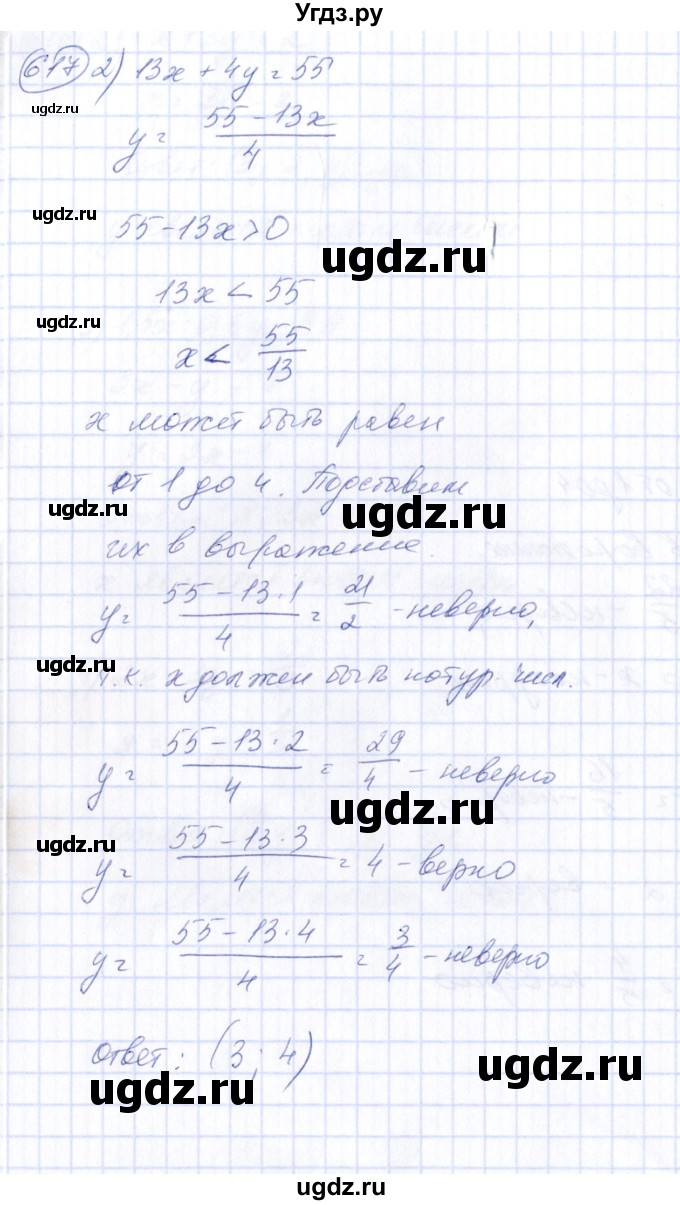 Угдз.ру
617 2) 13x + 4y = 55
ugdz.ru
y = (55 - 13x)/4
ugdz.ru
55 - 13x > 0
ugdz.ru
13x < 55
ugdz.ru
x < 55/13
x может быть равен
от 1 до 4. Подставим
ugdz.ru
ugdz.ru
их в выражение.
y = (55 - 13·1)/4 = 21/2 - неверно,
ugdz.ru
т.к. x должен быть натур. числ.
y = (55 - 13·2)/4 = 29/4 - неверно
ugdz.ru
ugdz.ru
y = (55 - 13·3)/4 = 4 - верно
y = (55 - 13·4)/4 = 3/4 - неверно
Ответ: (3; 4)
ugdz.ru
ugdz.ru
ugdz.ru